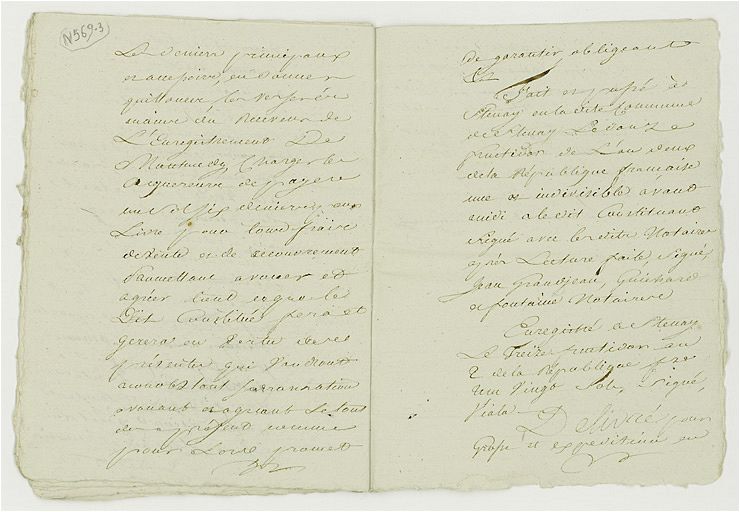 N569-3
Les deniers principaux
et accessoires, en donner
quittance les verser és
mains du Receveur de
L'Enregistrement De
Montmedy Charger les
acquereurs de payer
un sol six deniers par
Livre pour tous fraix
de vente et de recouvrement
Promettant avouer et
agréer tout ce que le
Dit Constitué fera et
gerera en Vertu de ces
présentes qui Vaudront
nonobstant surannation
avouant et agréant le tout
dès à présent comme
pour Lors promet
de garantir obligeant
&c
Fait et passé à
Stenay en la dite Commune
de Stenay Le douze
fructidor de L'an deux
de la République française
une et indivisible avant
midi a le dit Constituant
Signé avec les dits Notaires
après Lecture faite, Signés
Jean Grandjean, Guichard
et fontaine Notaires
Enregistré a Stenay
Le Treize fructidor an
2 de la République
Vingt Sols, Signé,
Viola
Délivré pour
Grosse et expédition en